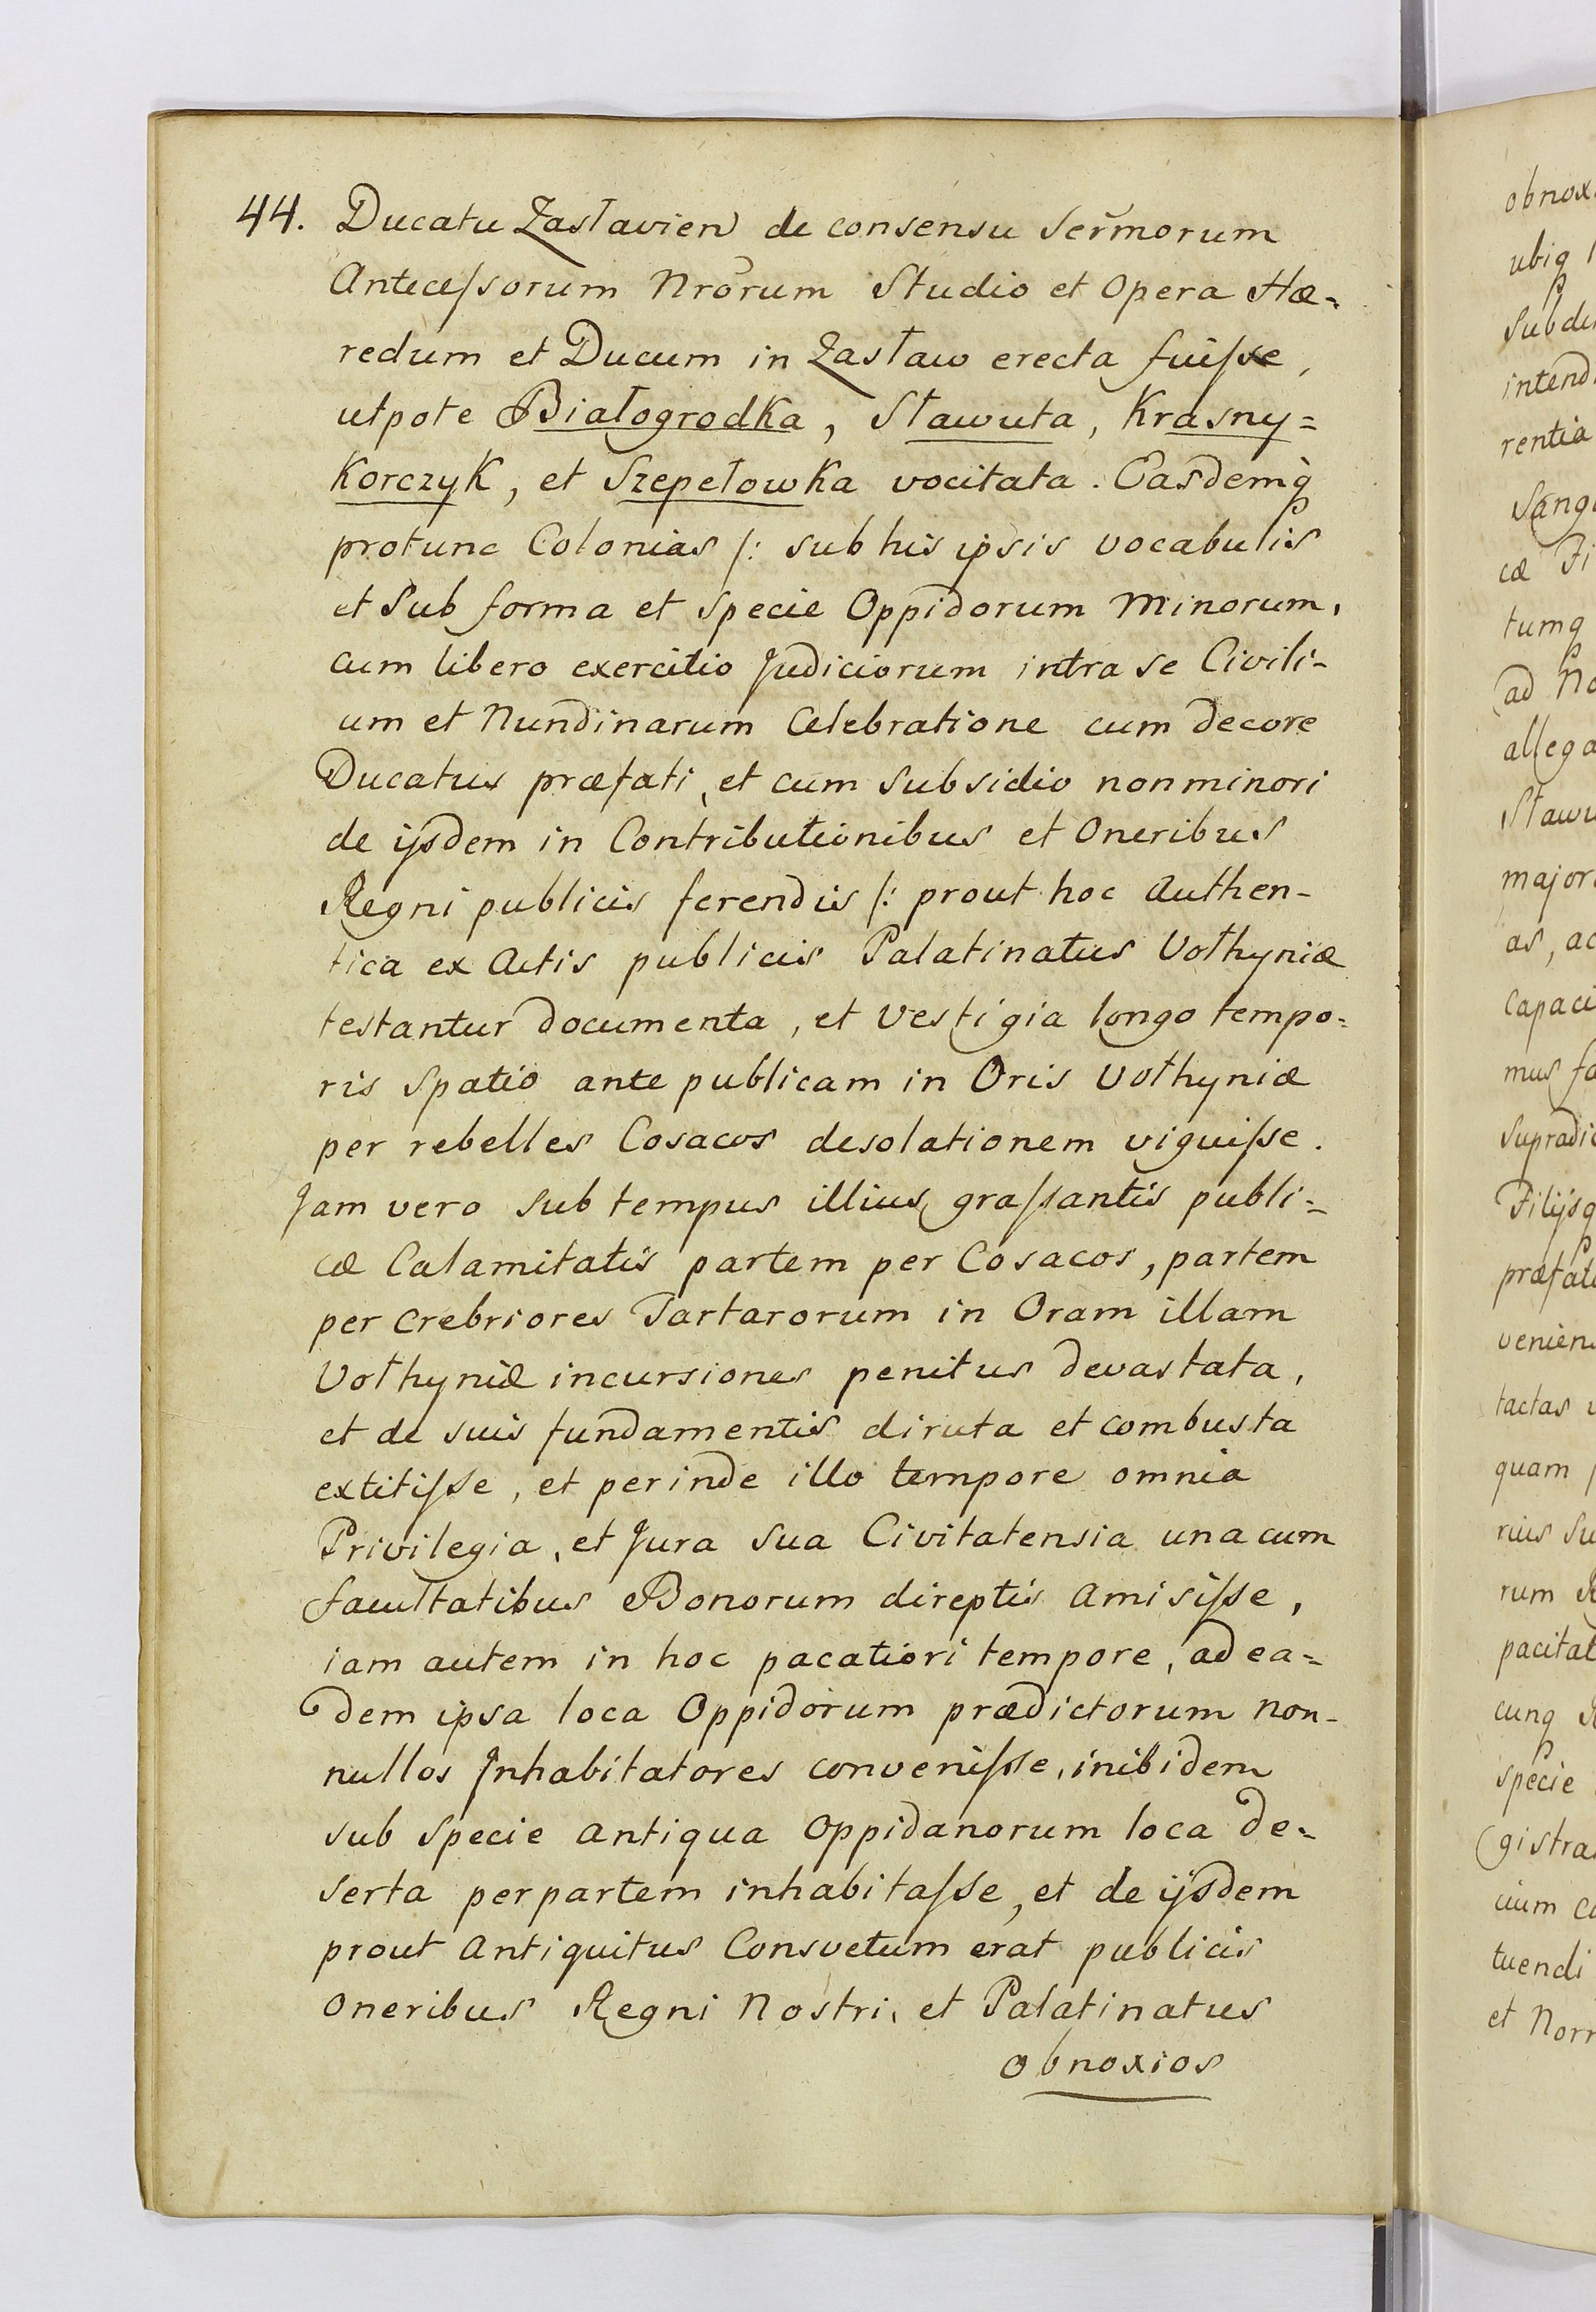 44. Ducatu Zasławien de consensu Serm̃orum
Antecessorum Nrõrum Studio et Opera Hæ=
redum et Ducum in Zasław erecta fuisse,
utpote Białogrodka, Sławuta, Krasny=
Korczyk, et Szepełowka vocitata. Easdemq̃
protunc Colonias /: sub his ipsis vocabulis
et Sub forma et Specie Oppidorum Minorum,
cum libero exercitio Judiciorum intra se Civili-
um et Nundinarum Celebratione cum decore
Ducatus præfati, et cum subsidio non minori
de ijsdem in Contributionibus et Oneribus
Regni publicis ferendis /: prout hoc Authen-
tica ex Actis publicis Palatinatus Vołhyniæ
testantur documenta, et vestigia longo tempo=
ris Spatio ante publicam in Oris Vołhyniæ
per rebelles Cosacos desolationem viguisse.
Jam vero sub tempus illius grassantis publi=
cæ Calamitatis partem per Cosacos, partem
per crebriores Tartarorum in Oram illam
Vołhyniæ incursiones penitus devastata,
et de suis fundamentis diruta et combusta
extitisse, et perinde illo tempore omnia
Privilegia, et Jura sua Civitatensia una cum
facultatibus Bonorum direptis amisisse,
iam autem in hoc pacatiori tempore, ad ea=
dem ipsa loca Oppidorum prædictorum non-
nullos Jnhabitatores convenisse, inibidem
sub specie antiqua Oppidanorum loca de=
serta per partem inhabitasse, et de ijsdem
prout Antiquitus Consvetum erat publicis
Oneribus Regni Nostri, et Palatinatus
obnoxios